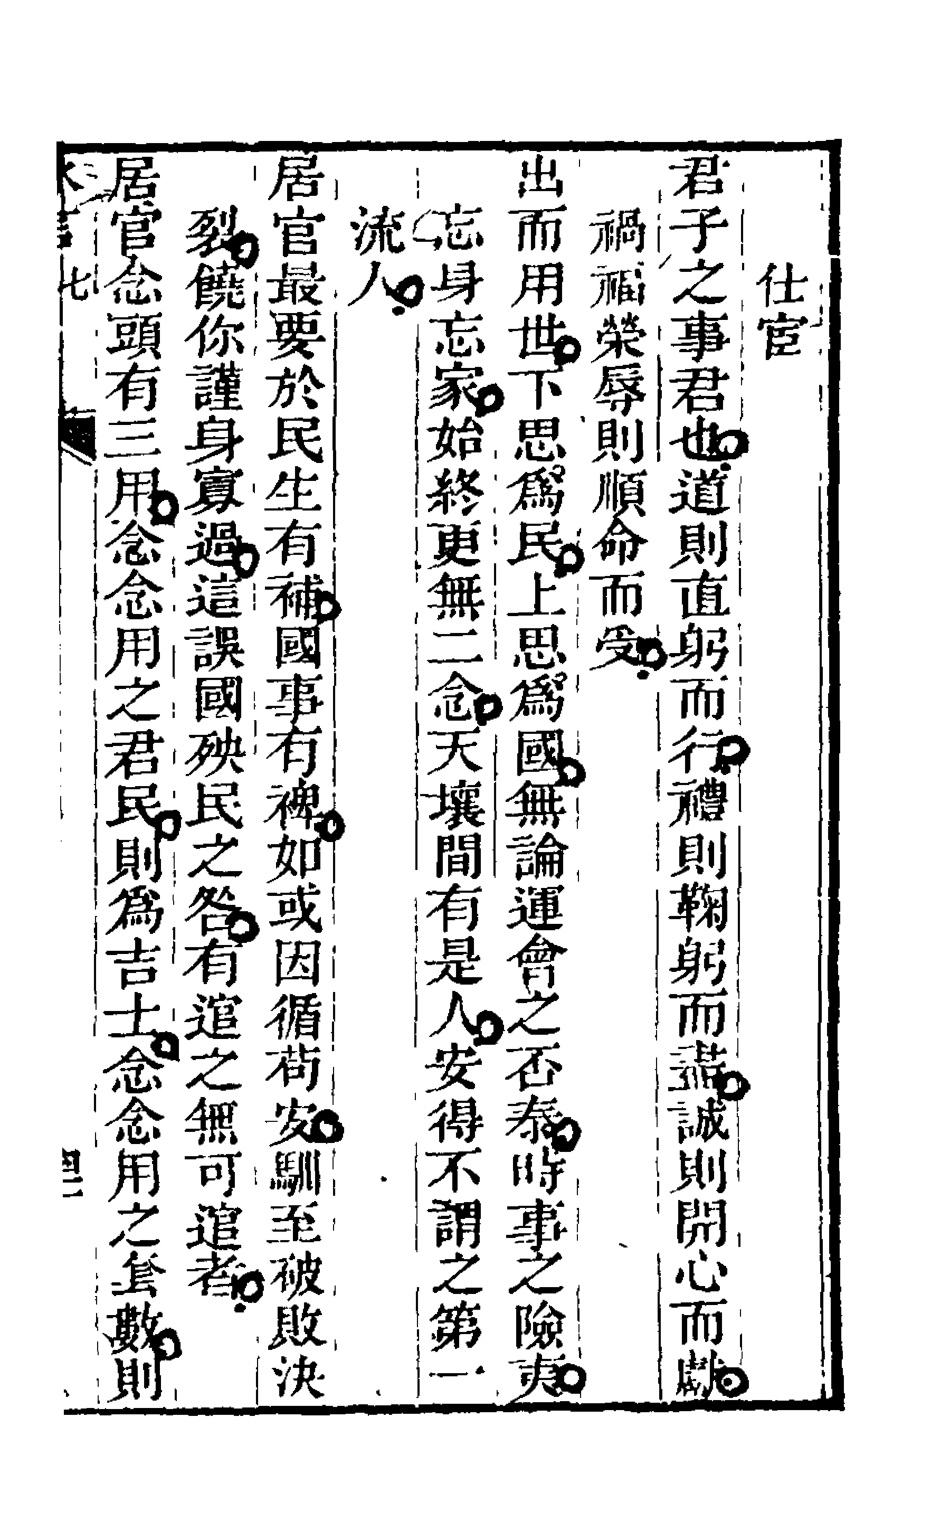 仕宦
君子之事君也道則直躬而行禮則鞠躬而盡誠則開心而獻
禍福榮辱則順命而受
出而用世下思爲民上思爲國無論運會之否泰時事之險夷
忘身忘家始終更無二念天壤間有是人安得不謂之第一
流人
居官最要於民生有補國事有裨如或因循苟安馴至破敗決
裂饒你謹身寡過這誤國殃民之咎有逭之無可逭者
居官念頭有三用念念用之君民則爲吉士念念用之套數則
七